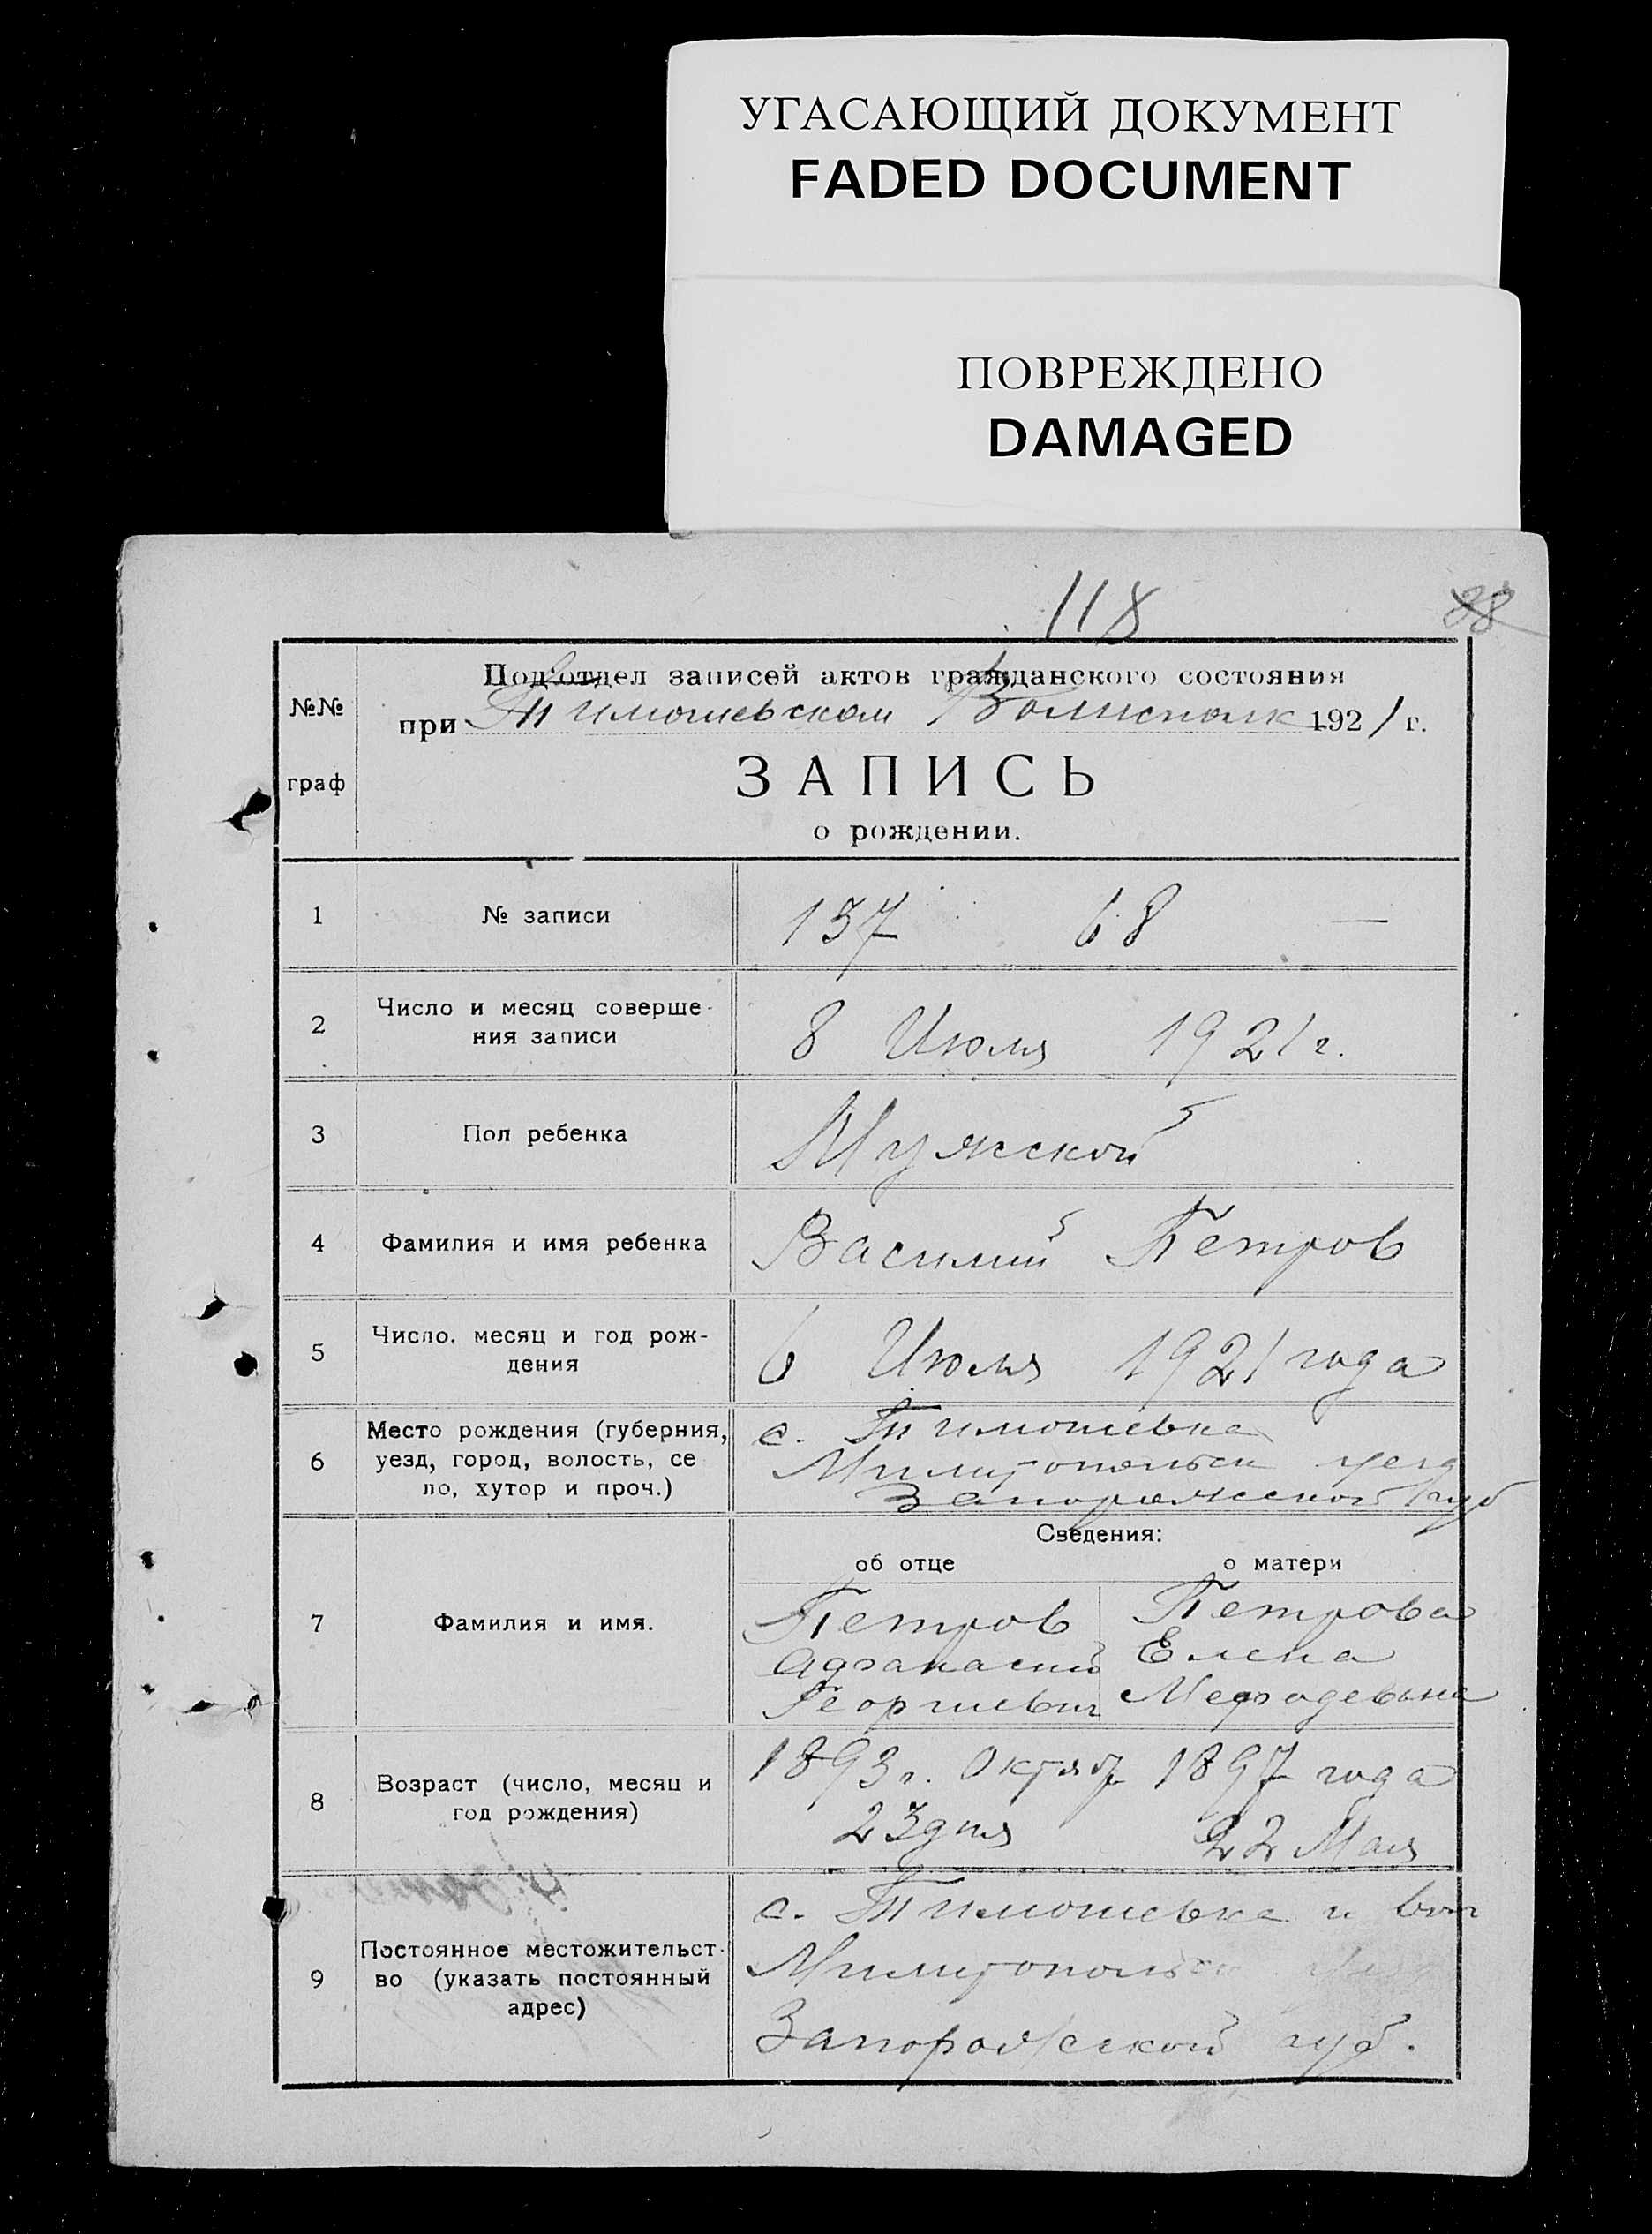 УГАСАЮЩИЙ ДОКУМЕНТ
FADED DOCUMENT
ПОВРЕЖДЕНО
DAMAGED
118 88
№№ граф
Подотдел записей актов гражданского состояния
при Тимошевском 1921 г.
ЗАПИСЬ
о рождении.
1 № записи 137 68 —
2 Число и месяц соверше-
ния записи 8 Июля 1921 г.
3 Пол ребенка Мужской
4 Фамилия и имя ребенка Василий Петров
5 Число, месяц и год рож-
дения 6 Июля 1921 года
6 Место рождения (губерния,
уезд, город, волость, се
ло, хутор и проч.)
с. Тимошевка
Милитопольск уезд
Запорожской губ
Сведения:
об отце о матери
7 Фамилия и имя.
Петров Петрова
Афанасий Елена
Георгиевич Мефодевна
8 Возраст (число, месяц и
год рождения)
1893 г. Октяб 1897 года
23 дня 22 Мая
9 Постоянное местожительст-
во (указать постоянный
адрес)
с. Тимошевка и вол
Милитопольск
Запорожской губ.